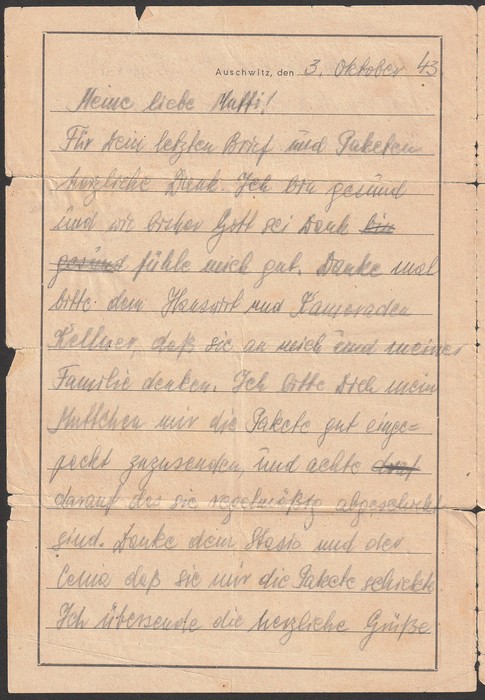 Auschwitz, den 3. Oktober 43
Meine liebe Mutti!
Für Dein letzten Brief und Paketen
herzliche Dienk. Ich bin gesund
und wie bisher Gott sei Dank bin
gesund fühle mich gut. Danke mal
bitte dem Hauswirt und Kameraden
Kellner, daß sie an mich und meiner
Familie denken. Ich bitte Dich mein
Muttchen mir die Pakete gut einge=
packt zuzusenden, und achte drauf
darauf das sie regelmäßig abgeschickt
sind. Danke dem Stasio und der
Cenia daß sie mir die Pakete schickte.
Ich übersende die herzliche Grüße